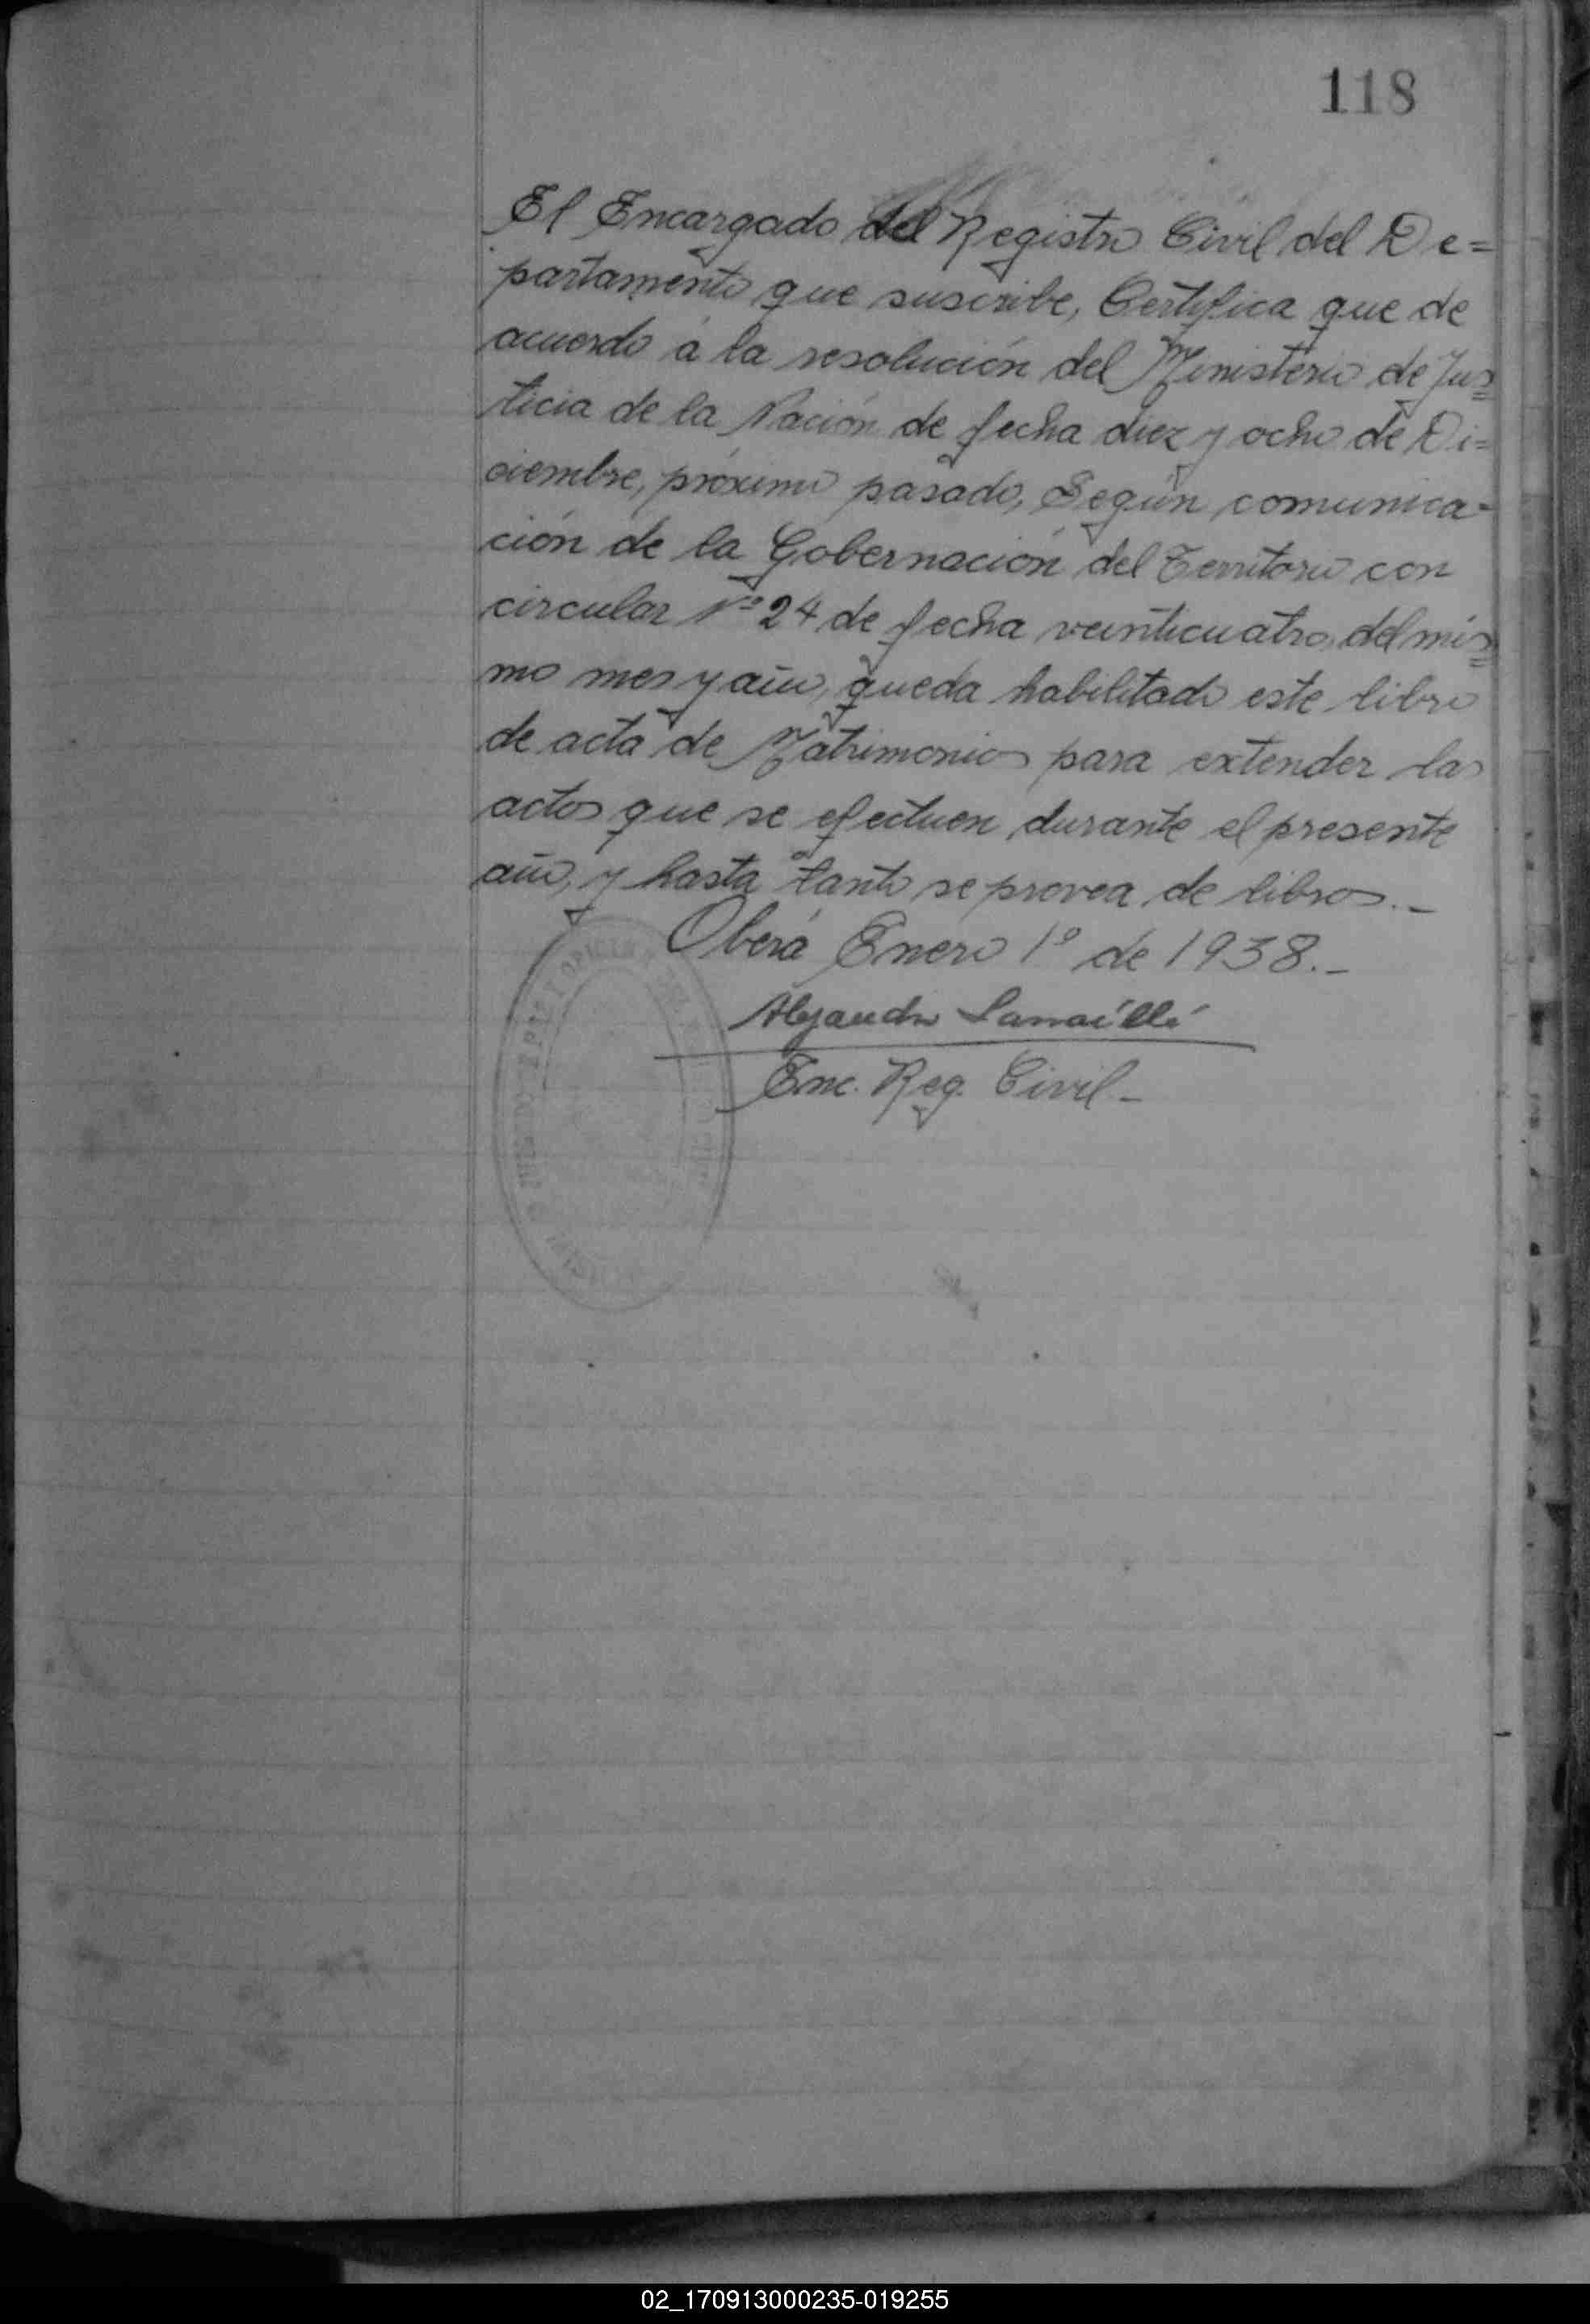 118
El Encargado del Registro Civil del De=
partamento que suscribe, Certifica que de
acuerdo á la resolución del Ministerio de Jus=
ticia de la Nación de fecha diez y ocho de Di=
ciembre, próximo pasado, Según comunica-
ción de la Gobernación del Territorio con
circular Nº 24 de fecha veinticuatro, del mis=
mo mes y año, queda habilitado este libro
de acta de Matrimonios para extender las
actos que se efectuen durante el presente
año, y hasta tanto se provea de libros.-
Oberá Enero 1º de 1938.-
Alejandro
Enc. Reg. Civil-
02_170913000235-019255